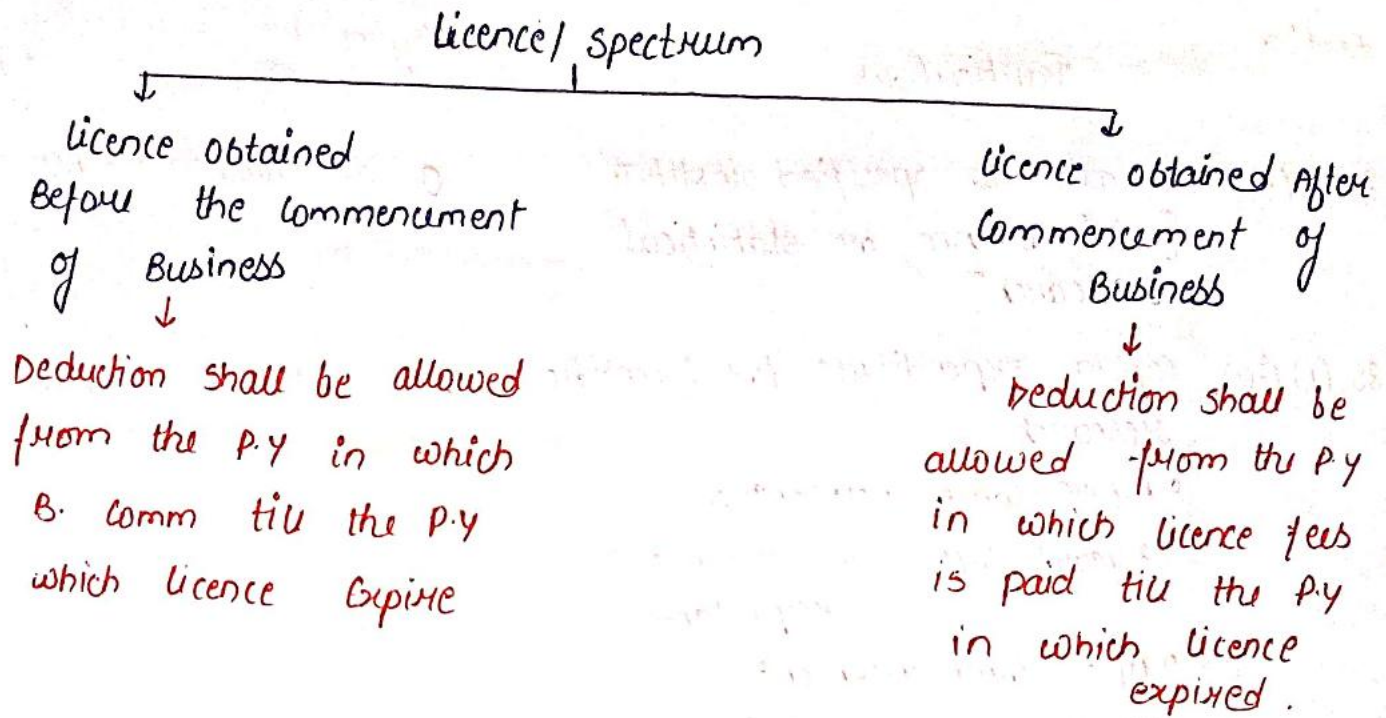 Licence/ Spectrum
Licence obtained
Before the Commencement
of Business
Deduction shall be allowed
from the P.Y in which
B. Comm till the P.Y
which licence Expire
Licence obtained After
Commencement of
Business
Deduction shall be
allowed from the P.Y
in which licence fees
is paid till the P.Y
in which licence
expired.